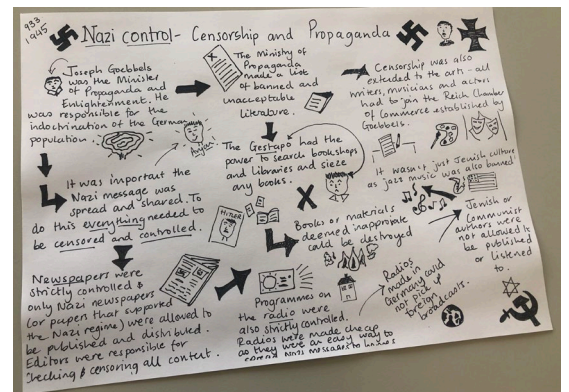 933
1945
Nazi control - Censorship and Propaganda
Joseph Goebbels
was the Minister
of Propaganda and
Enlightenment. He
was responsible for the
indoctrination of the German
population.
Aryan.
The Ministry of
Propaganda
made a list
of banned and
unacceptable
literature.
Censorship was also
extended to the arts - all
writers, musicians and actors
had to join the Reich Chamber
of Commerce established by
Goebbels.
It was important the
Nazi message was
spread and shared. To
do this everything needed to
be censored and controlled.
The Gestapo had the
power to search bookshops
and libraries and sieze
any books.
It wasn't just Jewish culture
as jazz music was also banned
HITLER
Books or materials
deemed inappropiate
could be destroyed
Jewish or
Communist
authors were
not allowed to
be published
or listened
to.
Newspapers were
strictly controlled &
only Nazi newspapers
(or papers that supported
the Nazi regime) were allowed to
be published and distributed.
Editors were responsible for
checking & censoring all content.
Programmes on
the radio were
also strictly controlled.
Radios were made cheap
as they were an easy way to
spread Nazi messages to
Radios
made in
Germany could
not pick up
foreign
broadcasts.